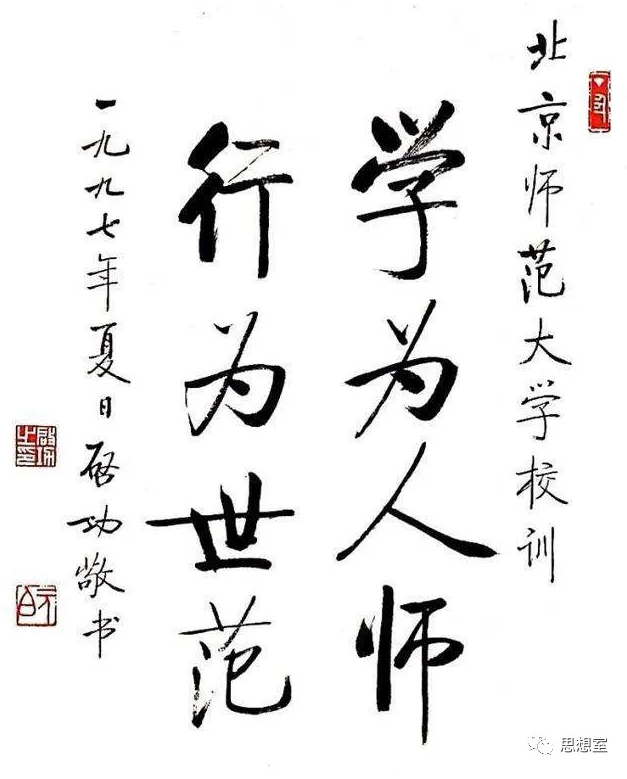 北京师范大学校训
学为人师
行为世范
一九九七年夏日启功敬书
启功之印
思想室